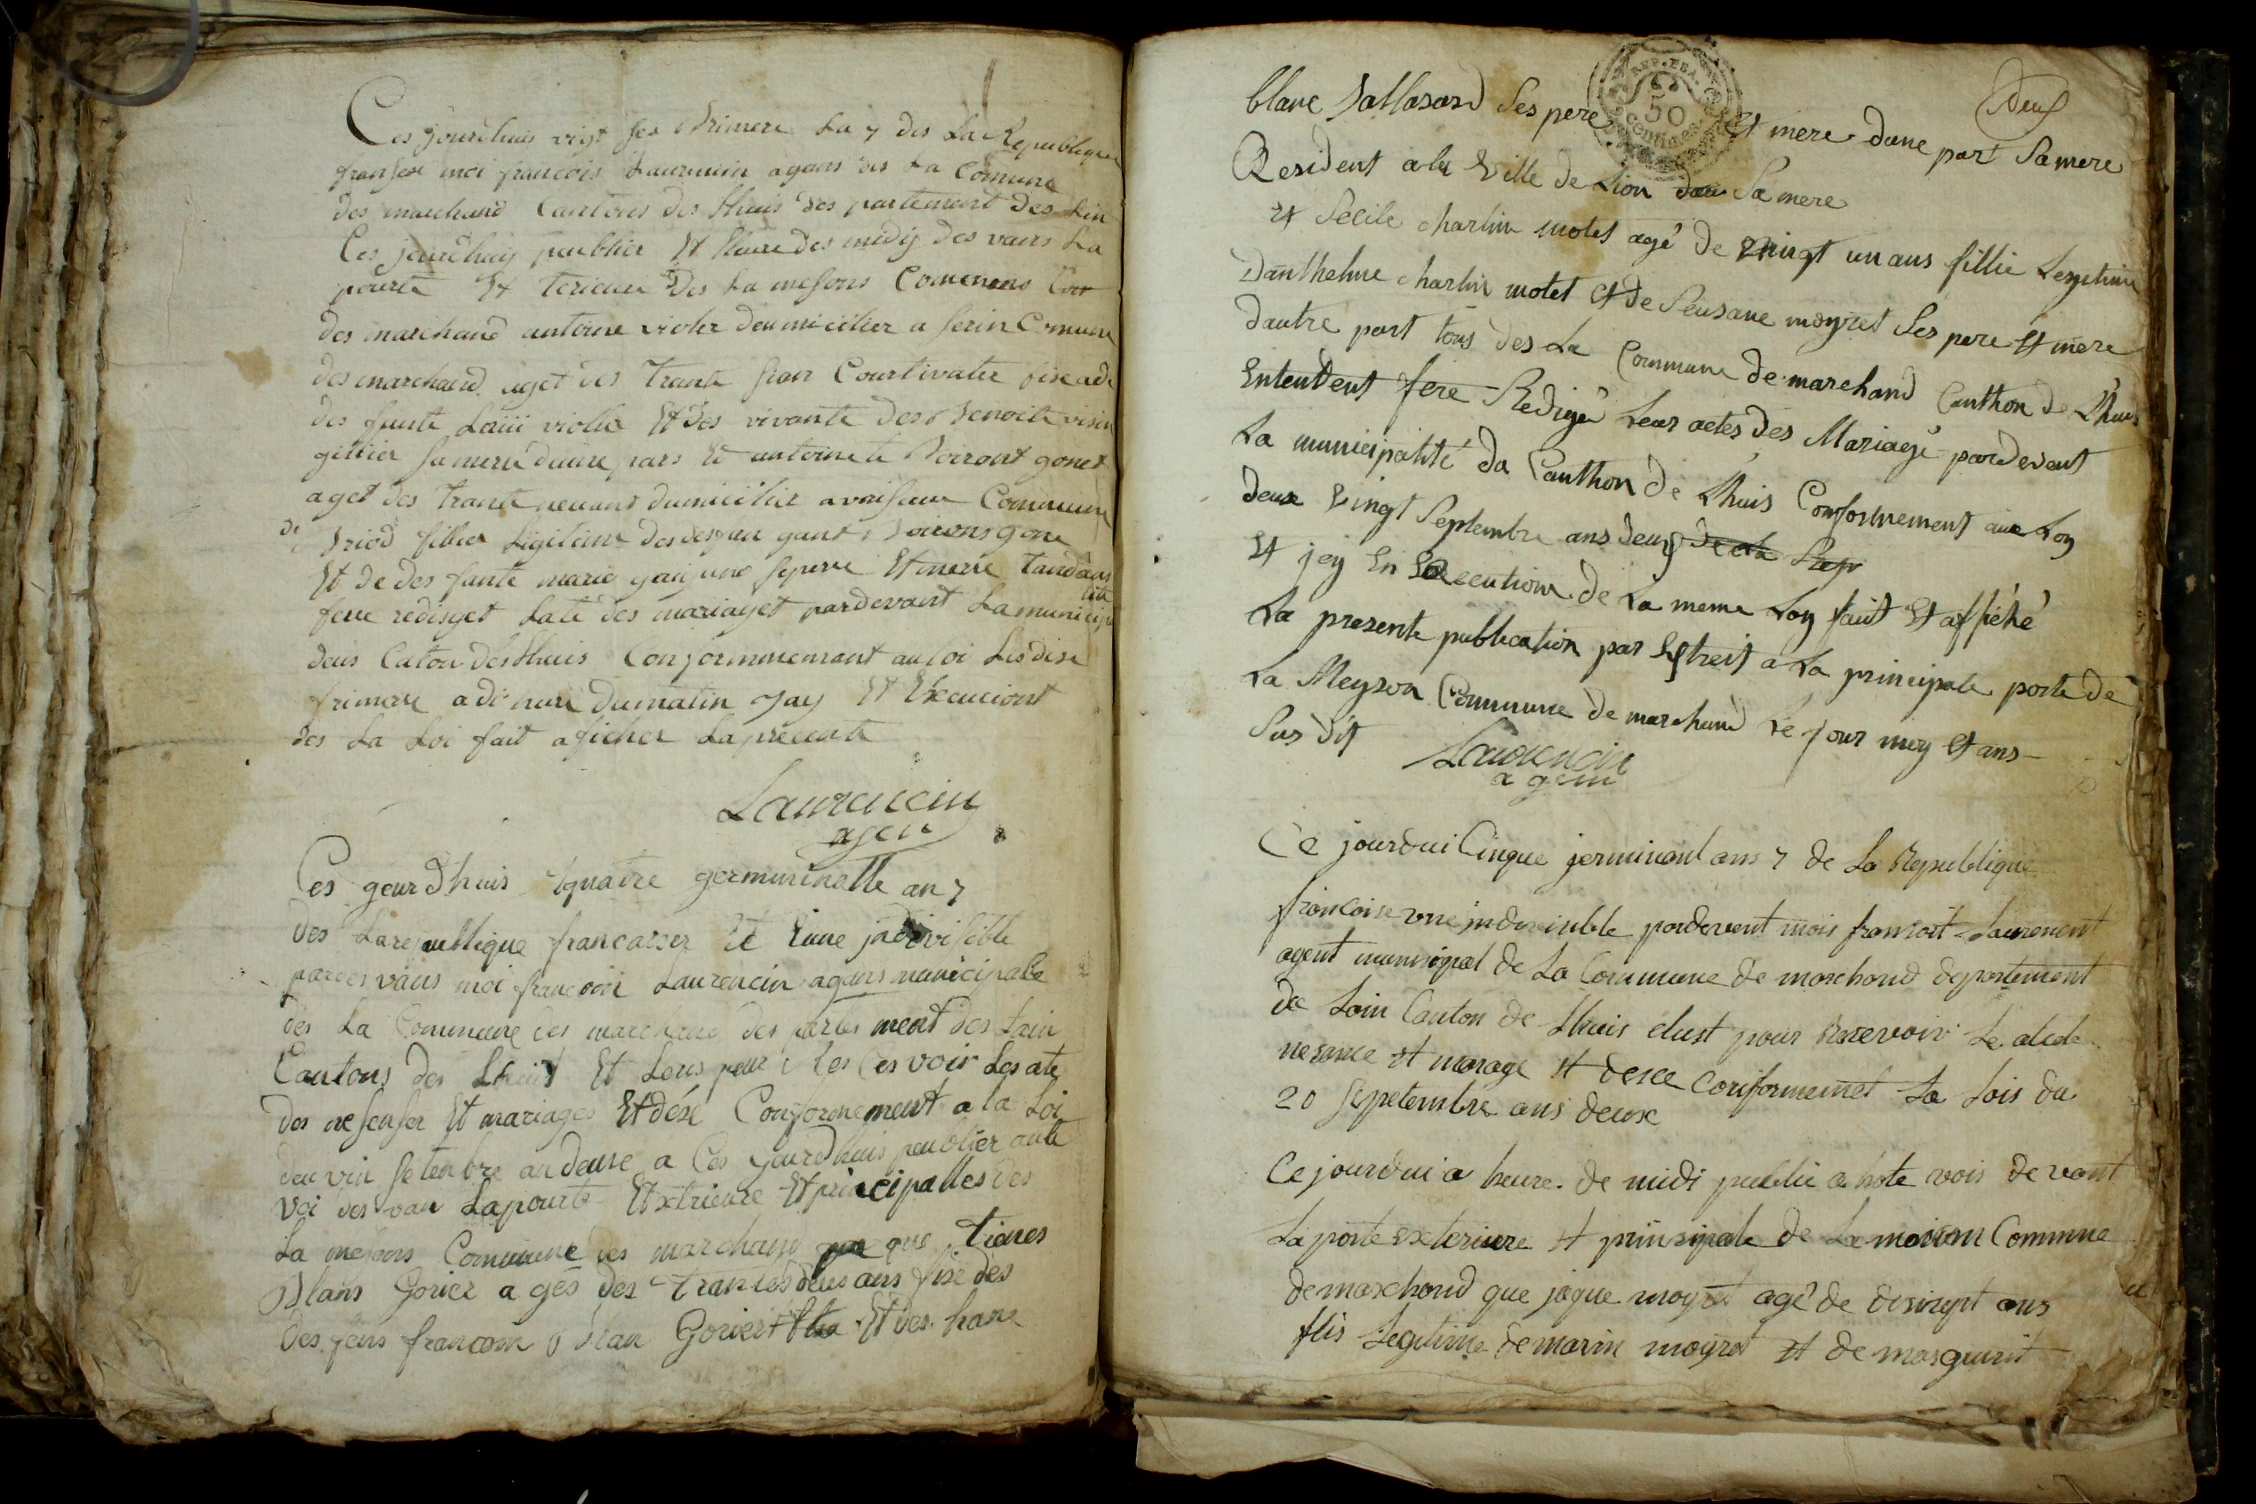 Ces jourdhuis vigt ses frimere La 7 des La Republique
franser moi francois Laurencin agans des La Comune
des marchand Cantons des Lhuis des partement des Lin
Ces jourdhuy peublier Et heure des midy des vans La
pourte Ex terieure Des La mesons Comenens
des marchand antoine violer doumicilier a serin Comune
des marchand aget des Trante sian Courtivater
des funte Loui violle Et des vivante des Benoite
gettier sa mere dune pars Et antoinete Boiront gonet
aget des Trante neuans dumicilier a Commune
de Briod fillier Legiteime des Boirons gone
Et de des fante marie sepere Et merre
ferre redisget Late des mariaget pardevant La municip
deus Caton des Lhuis Conformmemant au loi
frimere a di heure du matin Jay Et Execuciont
des La Loi fait aficher La precente
Laurencin
agen
Ces geurdhuis quatre germinnalle an 7
des La republique francaiser Et Eune jndivisible
pardes vans moi francois Laurencin agans municipale
des La Commune des marchand des partes ment des Lain
Cantons des Lhuis Et Leus pour Les ate
des nesenser Et mariages Et dése Conformement a la Loi
deu vin setenbre an deuse a Ces geurdhuis peublier aute
voi des van La pourte Extrieure Et principalles des
La mesons Commune des marchand que tienes
Blans Gorier a gés des trantes deus ans fise des
Des feus francois Blan Gorier Et des
deux
blanc Vallasard Ses pere Et mere dune part Sa mere
Resident a la Ville de Lion Sa mere
Et Secile charlin motet agé de Vingt un ans fillie Legetime
Danthelme charlin motet Et de Seusane moyret Ses pere Et mere
Dautre part tous des La Commune de marchand Canthon de Lhuis
Entendent fere Redigé Leur actes des Mariage pardevent
La municipalité da Canthon de Lhuis Conformement aux Loy
deux Vingt Septembre ans deux de la Rep
Et jey En Execution de La meme Loy fait Et affiché
La presente publication par Extreit a La principale porte de
La Meyson Commune de marchand Le jour moy Et ans
Sus dit
Laurencin
agem
Ce jourdui Cinque jerminant ans 7 de La Republique
francoise une indivisible pardevent mois fransoit Laurencent
agent munisipal de La Commune de marchand departement
de Loin Canton de Lhuis elust pour Recevoir Le acte de
nesance Et marage Et dese Conformemet La Lois du
20 sepetembre ans deuse
Ce jourdui a heure de midi publie a hote vois devant
La porte exterieure Et prinsipale de La maison Commune
de marchand que jaque moyret agé de disivept ans
flis Legitime de marin moyret Et de marguerit
REP. FRA.
50
CENTIMES